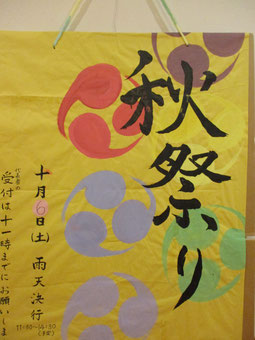 秋祭り
十月6日(土)雨天決行
11:30~14:30
受付は十一時までにお願いしま